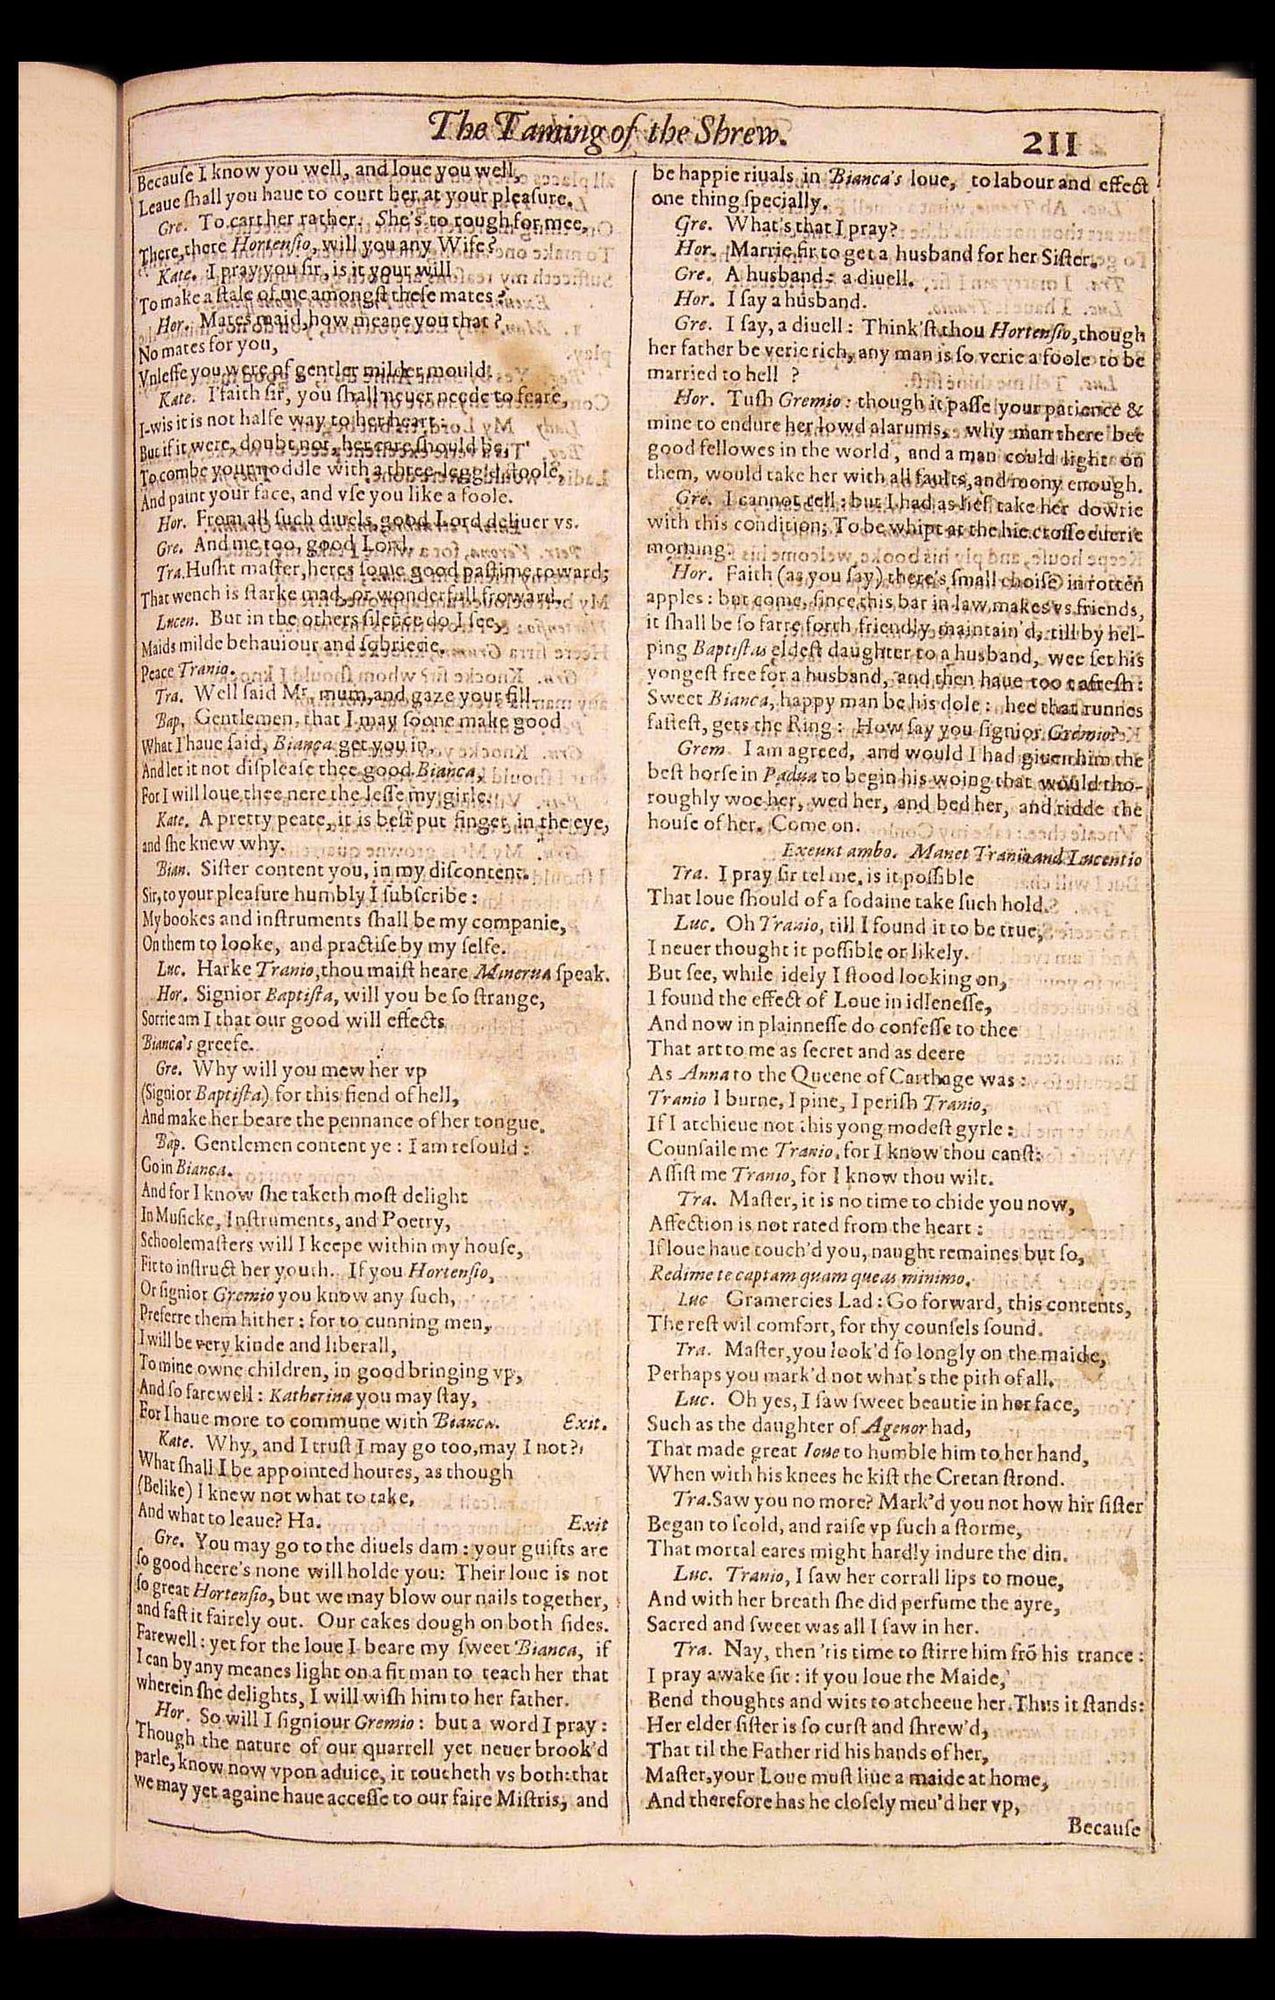 The Taming of the Shrew.
211
Becauſe I know you well, and loue you well,
Leaue ſhall you haue to court her at your pleaſure.
Gre. To cart her rather. She's to rough for mee,
There, there Hortenſio, will you any Wife?
Kate. I pray you ſir, is it your will
To make a ſtale of me amongſt theſe mates?
Hor. Mates maid, how meane you that?
No mates for you,
Vnleſſe you were of gentler milder mould.
Kate. I'faith ſir, you ſhall neuer neede to feare,
I-wis it is not halfe way to her heart:
But if it were, doubt not, her care ſhould be,
To combe your noddle with a three-legg'd ſtoole,
And paint your face, and vſe you like a foole.
Hor. From all ſuch diuels, good Lord deliuer vs.
Gre. And me too, good Lord.
Tra. Huſht maſter, heres ſome good paſtime toward;
That wench is ſtarke mad, or wonderfull froward.
Lucen. But in the others ſilence do I ſee,
Maids milde behauiour and ſobrietie.
Peace Tranio.
Tra. Well ſaid Mr, mum, and gaze your fill.
Bap. Gentlemen, that I may ſoone make good
What I haue ſaid, Bianca get you in,
And let it not diſpleaſe thee good Bianca,
For I will loue thee nere the leſſe my girle.
Kate. A pretty peate, it is beſt put finger in the eye,
and ſhe knew why.
Bian. Siſter content you, in my diſcontent.
Sir, to your pleaſure humbly I ſubſcribe:
My bookes and inſtruments ſhall be my companie,
On them to looke, and practiſe by my ſelfe.
Luc. Harke Tranio, thou maiſt heare Minerua ſpeak.
Hor. Signior Baptiſta, will you be ſo ſtrange,
Sorrie am I that our good will effects
Bianca's greefe.
Gre. Why will you mew her vp
(Signior Baptiſta) for this fiend of hell,
And make her beare the pennance of her tongue.
Bap. Gentlemen content ye: I am reſould:
Go in Bianca.
And for I know ſhe taketh moſt delight
In Muſicke, Inſtruments, and Poetry,
Schoolemaſters will I keepe within my houſe,
Fit to inſtruct her youth. If you Hortenſio,
Or ſignior Gremio you know any ſuch,
Preferre them hither: for to cunning men,
I will be very kinde and liberall,
To mine owne children, in good bringing vp,
And ſo farewell: Katherina you may ſtay,
For I haue more to commune with Bianca. Exit.
Kate. Why, and I truſt I may go too, may I not?
What ſhall I be appointed houres, as though
(Belike) I knew not what to take,
And what to leaue? Ha. Exit
Gre. You may go to the diuels dam: your guifts are
ſo good heere's none will holde you: Their loue is not
ſo great Hortenſio, but we may blow our nails together,
and faſt it fairely out. Our cakes dough on both ſides.
Farewell: yet for the loue I beare my ſweet Bianca, if
I can by any meanes light on a fit man to teach her that
wherein ſhe delights, I will wiſh him to her father.
Hor. So will I ſigniour Gremio: but a word I pray:
Though the nature of our quarrell yet neuer brook'd
parle, know now vpon aduice, it toucheth vs both: that
we may yet againe haue acceſſe to our faire Miſtris, and
be happie riuals in Bianca's loue, to labour and effect
one thing ſpecially.
Gre. What's that I pray?
Hor. Marrie ſir to get a husband for her Siſter.
Gre. A husband: a diuell.
Hor. I ſay a husband.
Gre. I ſay, a diuell: Think'ſt thou Hortenſio, though
her father be verie rich, any man is ſo verie a foole to be
married to hell ?
Hor. Tuſh Gremio: though it paſſe your patience &
mine to endure her lowd alarums, why man there bee
good fellowes in the world, and a man could light on
them, would take her with all faults, and mony enough.
Gre. I cannot tell: but I had as lief take her dowrie
with this condition; To be whipt at the hie croſſe euerie
morning.
Hor. Faith (as you ſay) there's ſmall choiſe in rotten
apples: but come, ſince this bar in law makes vs friends,
it ſhall be ſo farre forth friendly maintain'd, till by hel-
ping Baptiſtas eldeſt daughter to a husband, wee ſet his
yongeſt free for a husband, and then haue too t afreſh:
Sweet Bianca, happy man be his dole: hee that runnes
faſteſt, gets the Ring: How ſay you ſignior Gremio?
Grem. I am agreed, and would I had giuen him the
beſt horſe in Padua to begin his woing that would tho-
roughly woe her, wed her, and bed her, and ridde the
houſe of her. Come on.
Exeunt ambo. Manet Tranio and Lucentio
Tra. I pray ſir tel me, is it poſſible
That loue ſhould of a ſodaine take ſuch hold.
Luc. Oh Tranio, till I found it to be true,
I neuer thought it poſſible or likely.
But ſee, while idely I ſtood looking on,
I found the effect of Loue in idleneſſe,
And now in plainneſſe do confeſſe to thee
That art to me as ſecret and as deere
As Anna to the Queene of Carthage was:
Tranio I burne, I pine, I periſh Tranio,
If I atchieue not this yong modeſt gyrle:
Counſaile me Tranio, for I know thou canſt:
Aſſiſt me Tranio, for I know thou wilt.
Tra. Maſter, it is no time to chide you now,
Affection is not rated from the heart:
If loue haue touch'd you, naught remaines but ſo,
Redime te captam quam queas minimo.
Luc Gramercies Lad: Go forward, this contents,
The reſt wil comfort, for thy counſels ſound.
Tra. Maſter, you look'd ſo longly on the maide,
Perhaps you mark'd not what's the pith of all.
Luc. Oh yes, I ſaw ſweet beautie in her face,
Such as the daughter of Agenor had,
That made great Ioue to humble him to her hand,
When with his knees he kiſt the Cretan ſtrond.
Tra. Saw you no more? Mark'd you not how hir ſiſter
Began to ſcold, and raiſe vp ſuch a ſtorme,
That mortal eares might hardly indure the din.
Luc. Tranio, I ſaw her corrall lips to moue,
And with her breath ſhe did perfume the ayre,
Sacred and ſweet was all I ſaw in her.
Tra. Nay, then 'tis time to ſtirre him frō his trance:
I pray awake ſir: if you loue the Maide,
Bend thoughts and wits to atcheeue her. Thus it ſtands:
Her elder ſiſter is ſo curſt and ſhrew'd,
That til the Father rid his hands of her,
Maſter, your Loue muſt liue a maide at home,
And therefore has he cloſely meu'd her vp,
Becauſe